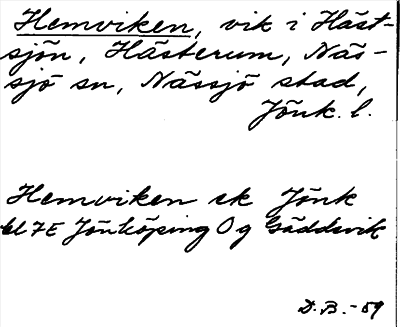 Hemviken, vik i Häst-
sjön, Hästerum, Näs-
sjö sn, Nässjö stad,
Jönk. l.
Hemviken ek Jönk
bl 7E Jönköping Og Gäddevik
D.B. -59